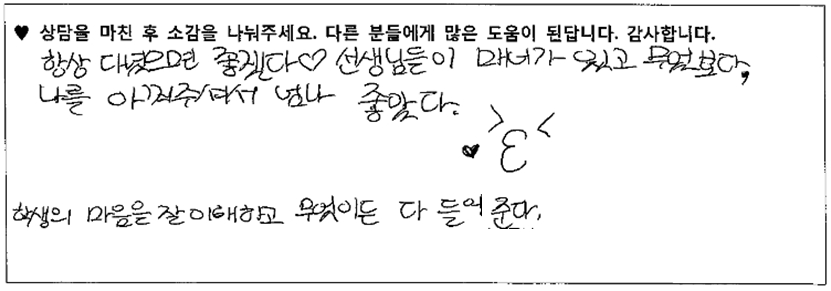 ♥ 상담을 마친 후 소감을 나눠주세요. 다른 분들에게 많은 도움이 된답니다. 감사합니다.
항상 대했으면 좋겠다♡ 선생님들이 매너가 있고 무엇보다,
나를 아껴주셔서 넘나 좋았다.
학생의 마음을 잘 이해하고 무엇이든 다 들어 준다.